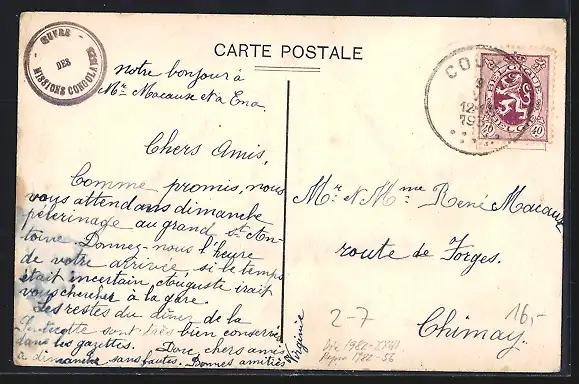 ŒUVRE
DES
MISSIONS CONGOLAISES
CARTE POSTALE
BELGIQUE
BELGIË
40 40
notre bonjour à
Mr Macaux et à Ena
Chers Amis,
Comme promis, nous
vous attendons dimanche
pélerinage au grand St An-
toine. Donnez-nous l'heure
de votre arrivée, si le temps
était incertain, Auguste irait
vous chercher à la gare.
Les restes du dîner de la
Pentecôte sont très bien conservés
dans les gazettes. Donc, chers amis
à dimanche sans fautes. Donnes amitiés
Virginie
Mr et Mme René Macaux
route de Forges.
Chimay.
2-7
16,-
1982
1982-56